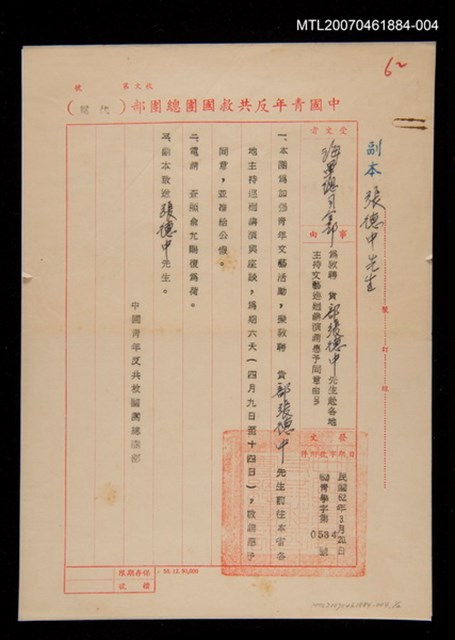 MTL20070461884-004
62
號 第文收
中國青年反共救國團總團部（代電）
副本 張德中先生
裝 訂 線
受文者
海軍總司令部
事由
為敦聘 貴部張德中先生赴各地
主持文藝巡迴講演請惠予同意由
發文
民國62年3月20日
青學字第0534號
一、本團為加強青年文藝活動，擬敦聘 貴部張德中先生前往本省各
地主持巡迴講演與座談，為期六天（四月九日至十四日），敬請惠予
同意，並准給公假。
二、電請 查照見復為荷。
三、副本致送張德中先生。
中國青年反共救國團總團部
保存期限
檔號